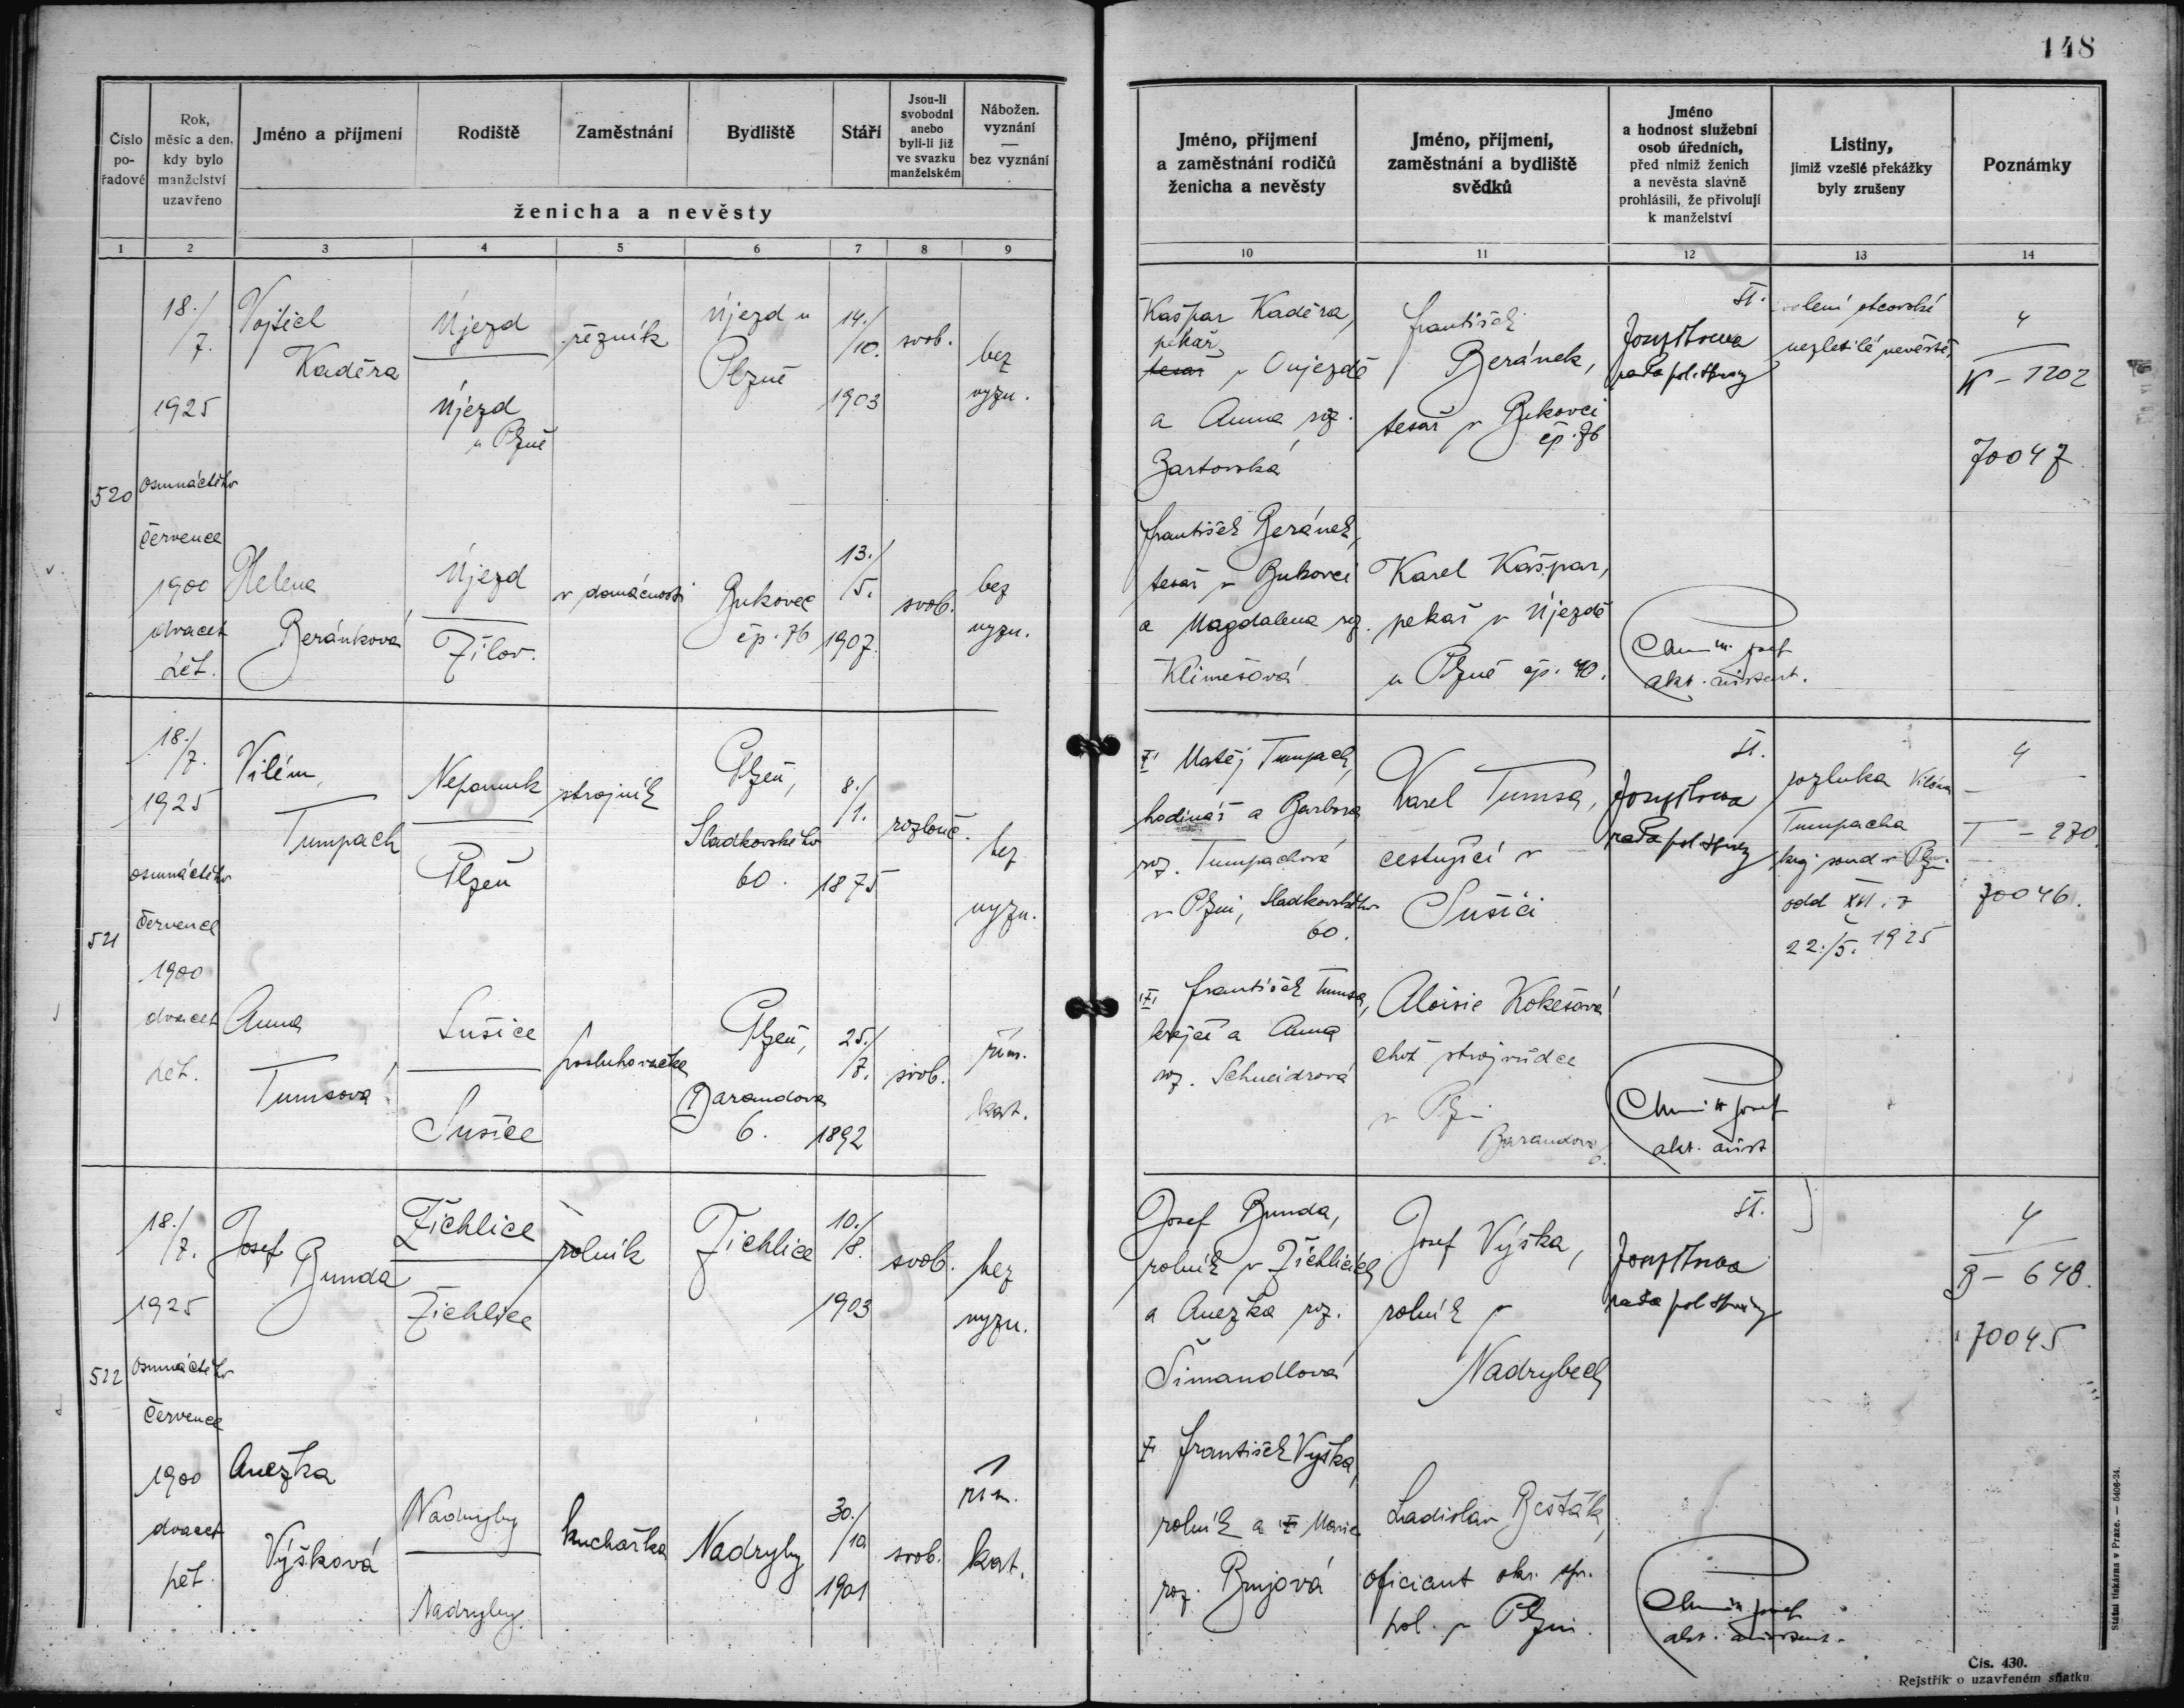 148
Číslo pořadové
Rok, měsíc a den, kdy bylo manželství uzavřeno
Jméno a příjmení
Rodiště
Zaměstnání
Bydliště
Stáří
Jsou-li svobodni anebo byli-li již ve svazku manželském
Nábožen. vyznání — bez vyznání
ženicha a nevěsty
Jméno, příjmení a zaměstnání rodičů ženicha a nevěsty
Jméno, příjmení, zaměstnání a bydliště svědků
Jméno a hodnost služební osob úředních, před nimiž ženich a nevěsta slavně prohlásili, že přivolují k manželství
Listiny, jimiž vzešlé překážky byly zrušeny
Poznámky
1 2 3 4 5 6 7 8 9 10 11 12 13 14
520
18./7.
1925
osmnáctého
července
1900
dvacet
pět.
Vojtěch
Kaděra
Újezd
Újezd
u Plzně
řezník
Újezd u
Plzně
14./10.
1903
svob.
bez
vyzn.
Helena
Beránková
Újezd
Žilov.
v domácnosti
Bukovec
čp. 76
13./5.
1907.
svob.
bez
vyzn.
Kašpar Kaděra,
pekař
tesař v Oujezdě
a Anna roz.
Bartovská
František Beránek,
tesař v Bukovci
a Magdalena roz.
Klimešová
František
Beránek,
tesař v Bukovci
čp. 76
Karel Kašpar,
pekař v Újezdě
u Plzně čp. 40.
rada pol. správy
akt. assistent.
volení otcovské
nezletilé nevěstě,
4
K – 1202
70047
521
18./7.
1925
osmnáctého
července
1900
dvacet
pět.
Vilém
Tumpach
Nepomuk
Plzeň
strojník
Plzeň,
Sladkovského
60.
8./1.
1875
rozlouč.
bez
vyzn.
Anna
Tumsová
Sušice
Sušice
posluhovačka
Plzeň,
Barandova
6.
25./7.
1892
svob.
řím.
kat.
Matěj Tumpach,
hodinář a Barbora
roz. Tumpachová
v Plzni, Sladkovského
60.
František Tumsa,
krejčí a Anna
roz. Schneidrová
Karel Tumsa,
cestující v
Sušici
Aloisie Kokešová
choť strojvůdce
v Plzni
Barandova
6.
rada pol. správy
akt. assist
rozluka Viléma
Tumpacha
kraj. soud v Plzni
odd XVI. z
22./5. 1925
4
T – 270.
70046.
522
18./7.
1925
osmnáctého
července
1900
dvacet
pět
Josef
Bunda
Žichlice
Žichlice
rolník
Žichlice
10./8.
1903
svob.
bez
vyzn.
Anežka
Výšková
Nadryby
Nadryby
kuchařka
Nadryby
30./10
1901
svob.
řím.
kat.
Josef Bunda,
rolník v Žichlicích
a Anežka roz.
Šimandlová
František Výška,
rolník a Marie
roz. Brujová
Josef Výška,
rolník v
Nadrybech
Ladislav Bešťák,
oficiant okr. spr.
pol. v Plzni.
rada pol. správy
akt. assistent.
4
B – 648.
70045
Státní tiskárna v Praze. — 5406-24.
Čís. 430.
Rejstřík o uzavřeném sňatku